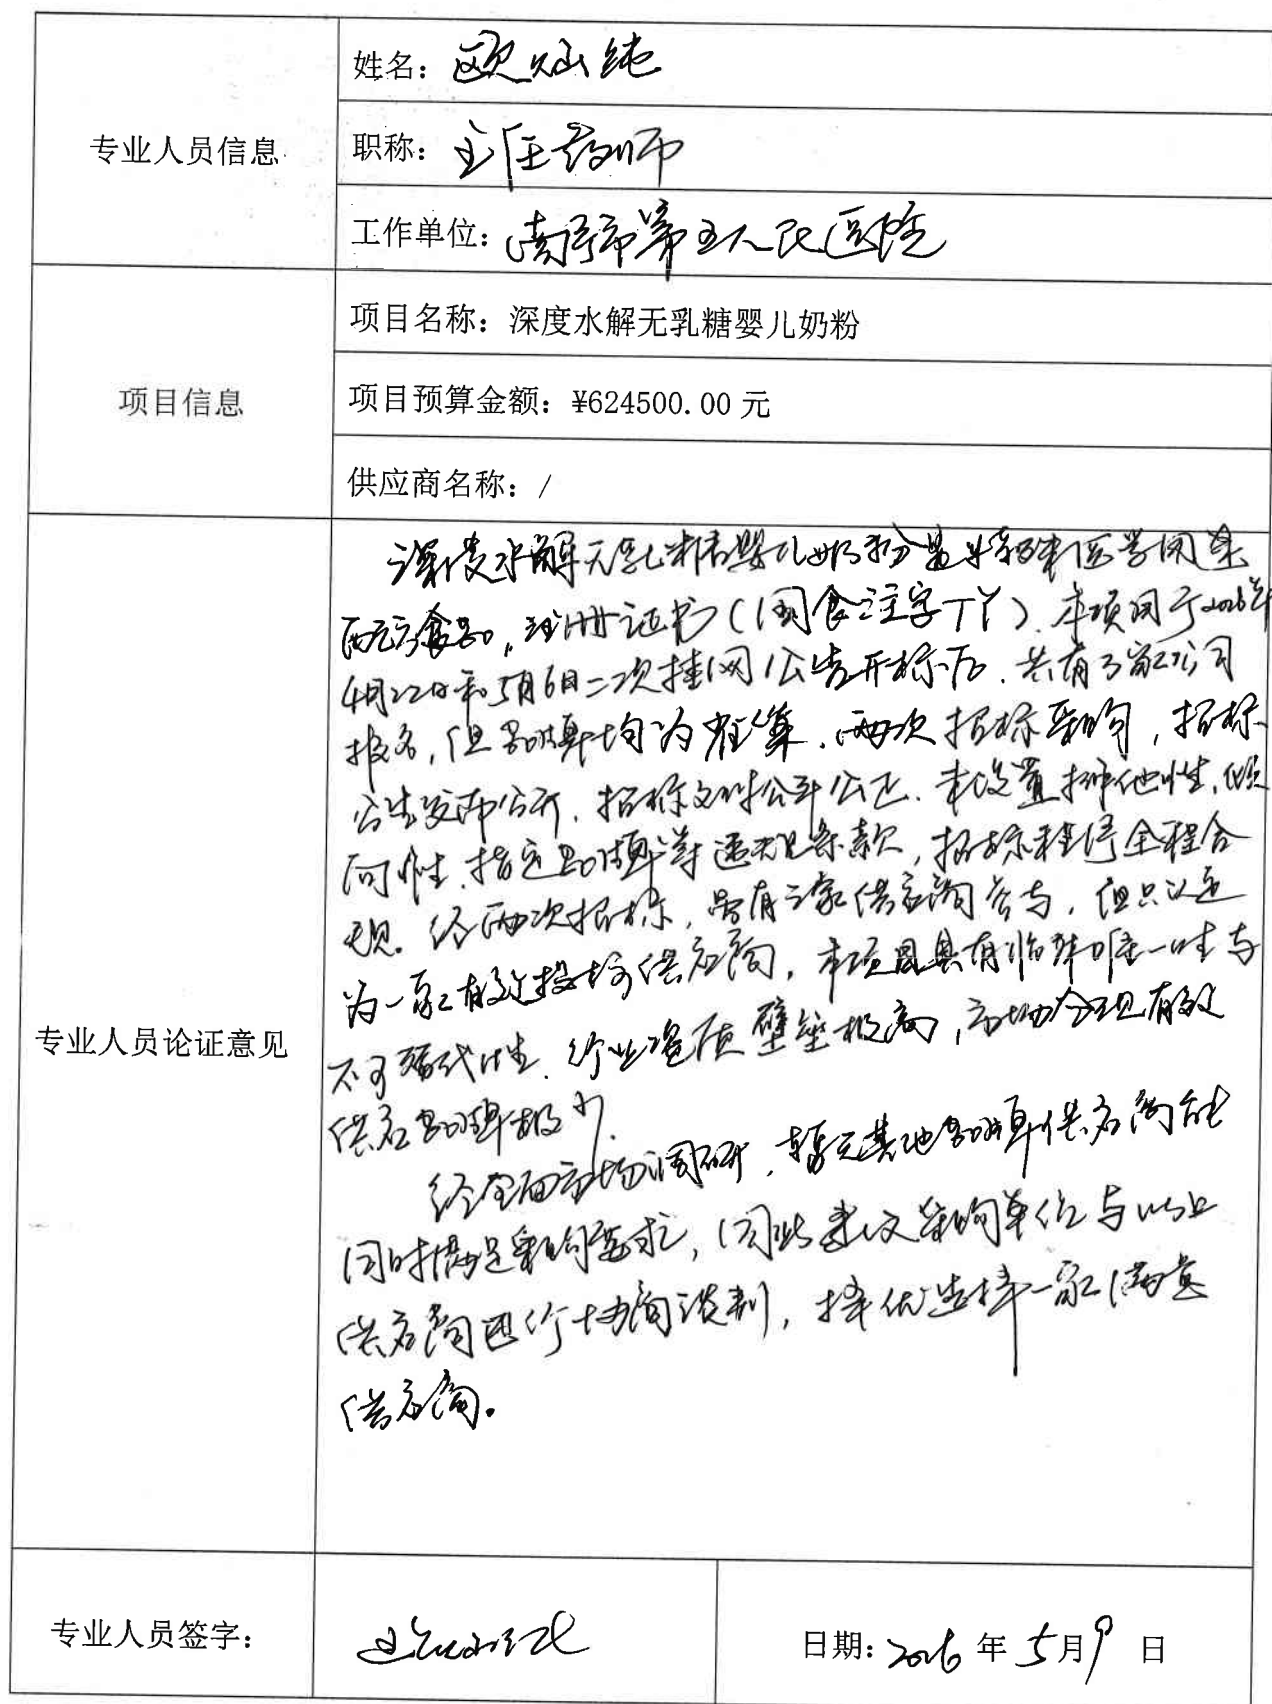 专业人员信息
姓名：欧灿纯
职称：主任药师
工作单位：南宁市第五人民医院
项目信息
项目名称：深度水解无乳糖婴儿奶粉
项目预算金额：¥624500.00 元
供应商名称：/
专业人员论证意见
深度水解无乳糖婴儿奶粉是特殊医学用途
配方食品，注册证书（国食注字TY）.本项目于2026年
4月22日和5月6日二次挂网公告开标后.共有3家公司
报名，但品牌均为雀巢.两次招标采购，招标
公告发布公开.招标文件公平公正.未设置排他性.倾
向性.指定品牌等违规条款，招标程序全程合
规。经两次招标，虽有三家供应商参与，但只认定
为一家有效投标供应商，本项目具有临床唯一性与
不可替代性.行业资质壁垒极高，市场合规有效
供应品牌极少.
经全面市场调研，暂无其他品牌供应商能
同时满足采购要求，因此建议采购单位与以上
供应商进行协商谈判，择优选择一家满意
供应商。
专业人员签字：
日期：2026年5月9日